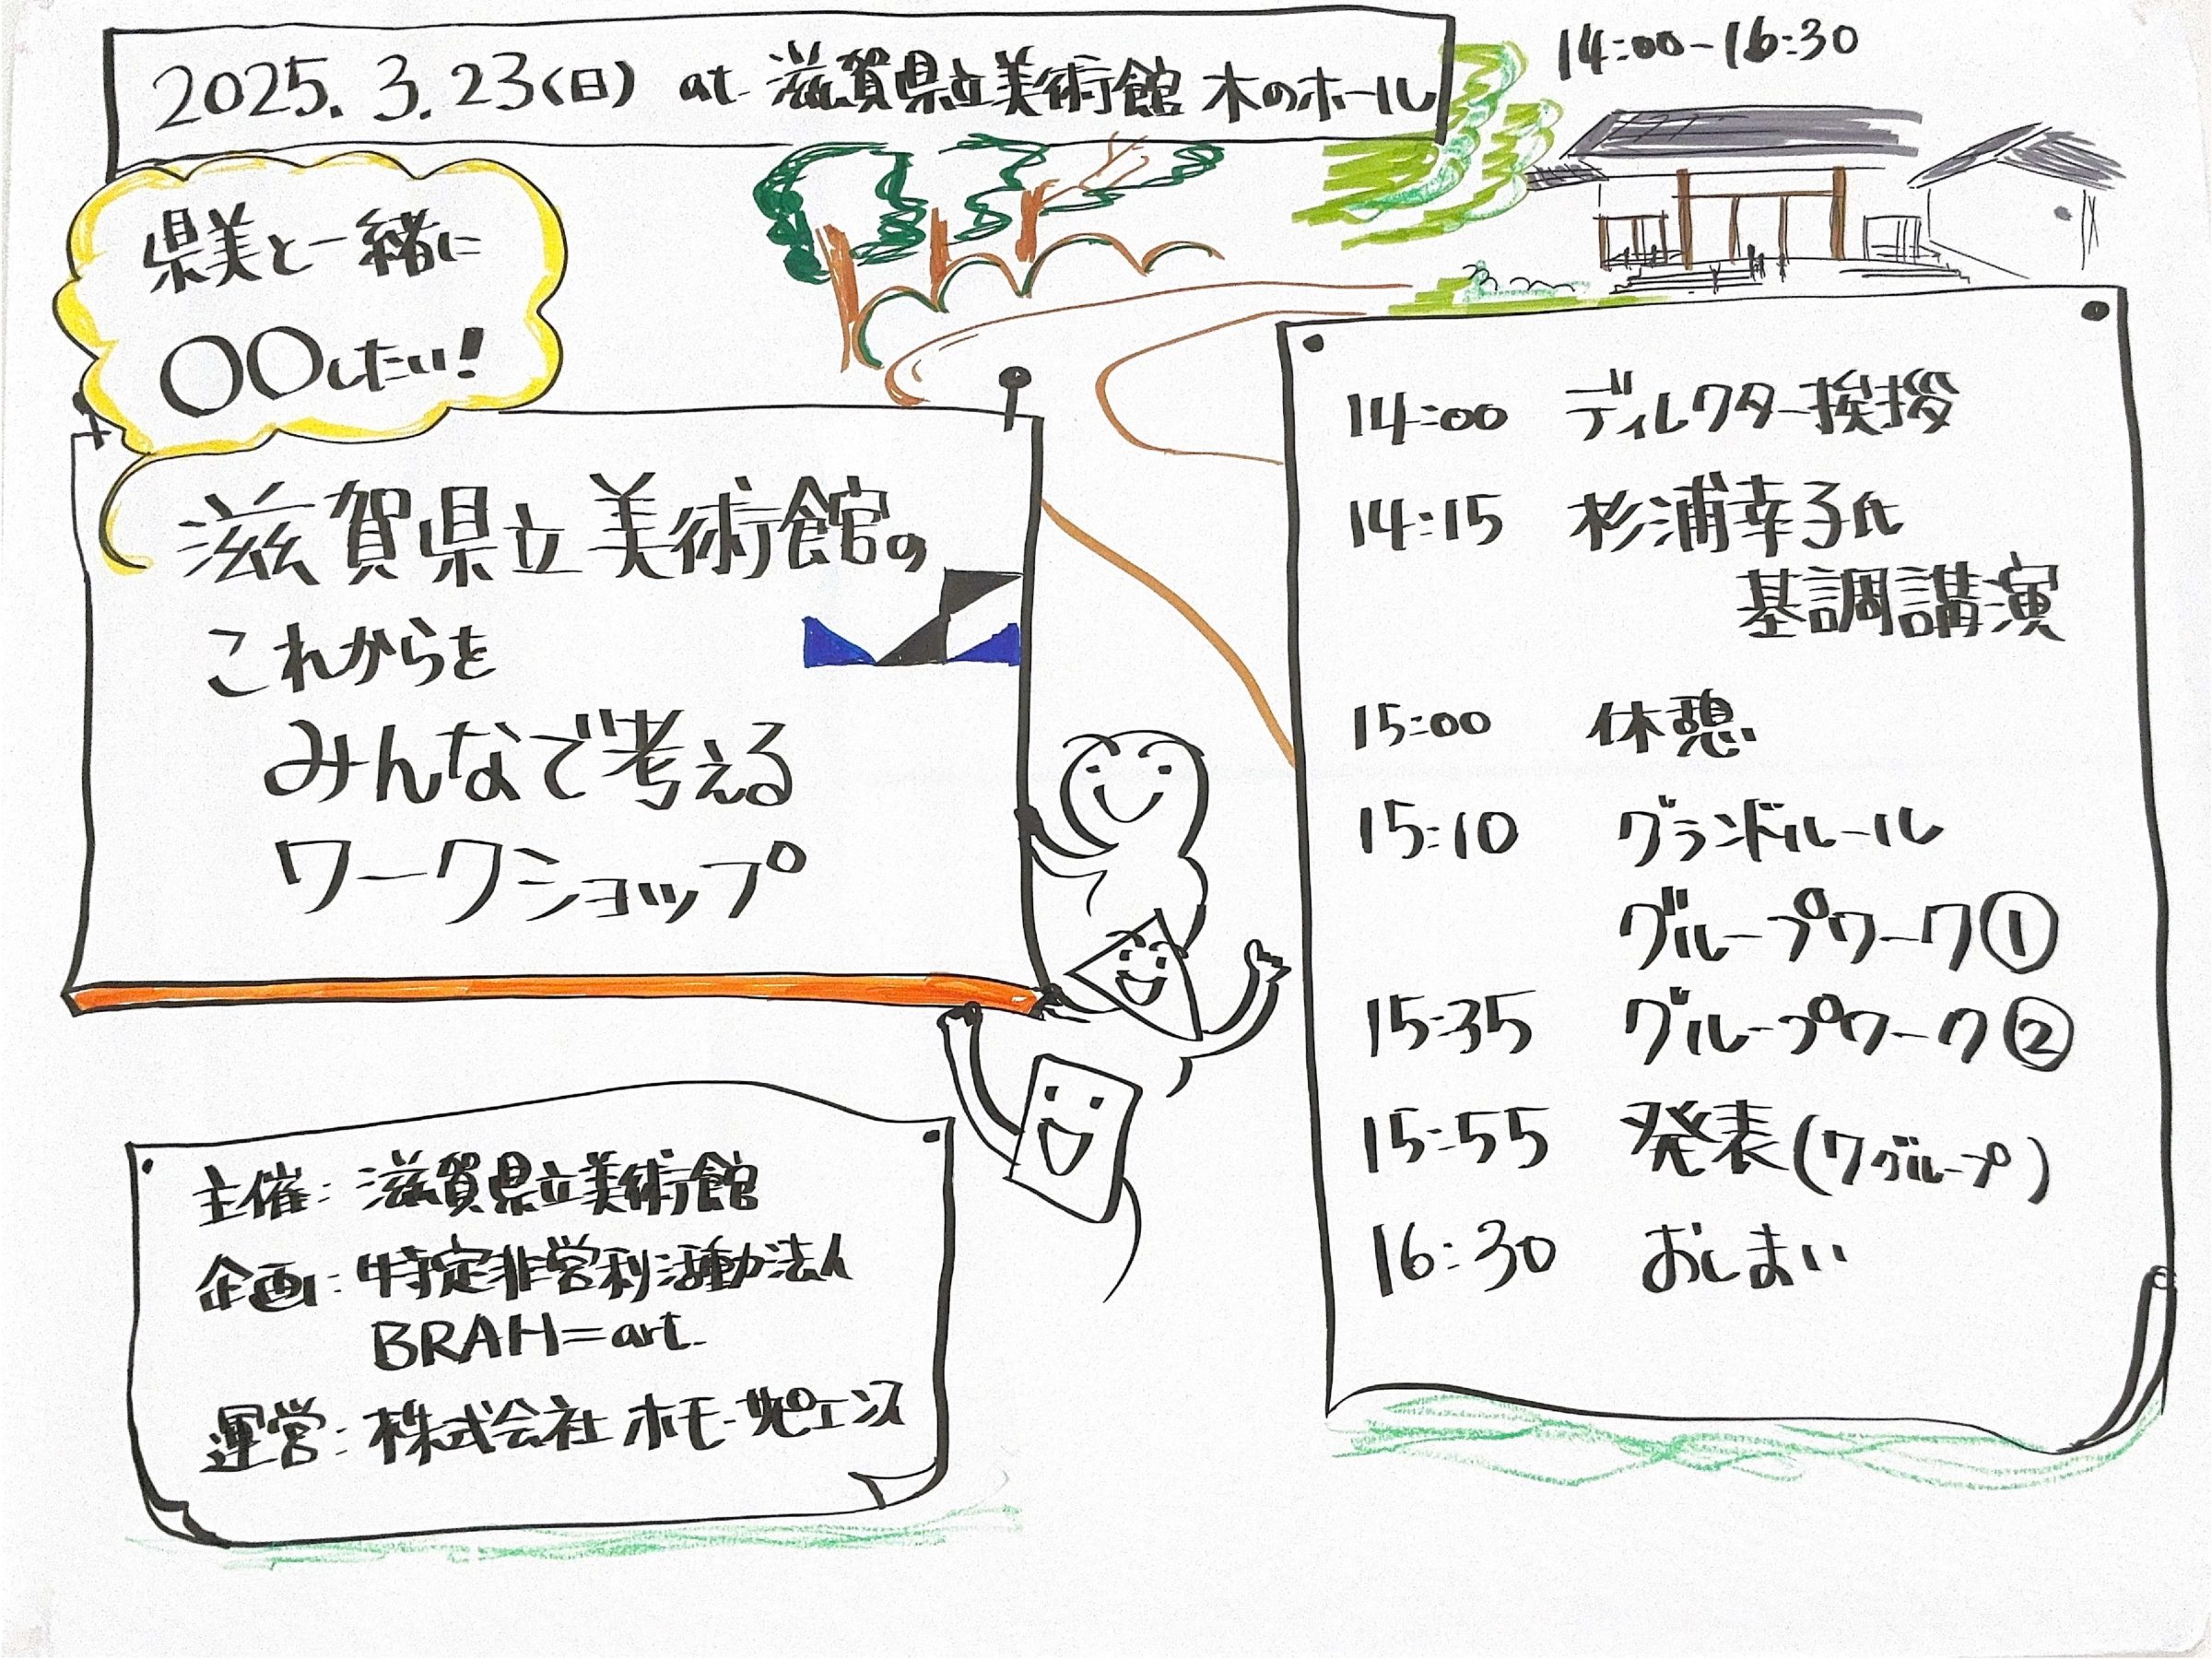 2025.3.23(日) at 滋賀県立美術館 木のホール
14:00-16:30
県美と一緒に
〇〇したい!
滋賀県立美術館の
これからを
みんなで考える
ワークショップ
主催: 滋賀県立美術館
企画: 特定非営利活動法人
BRAH=art.
運営: 株式会社 ホモ・サピエンス
14:00 ディレクター挨拶
14:15 杉浦幸子氏
基調講演
15:00 休憩
15:10 グランドルール
グループワーク①
15:35 グループワーク②
15:55 発表(7グループ)
16:30 おしまい